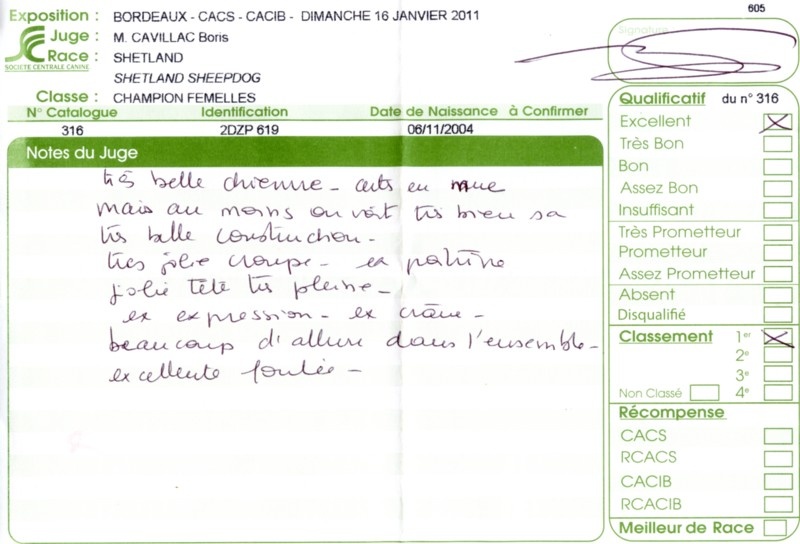 605
Exposition : BORDEAUX - CACS - CACIB - DIMANCHE 16 JANVIER 2011
Juge : M. CAVILLAC Boris
Race : SHETLAND
SOCIETE CENTRALE CANINE
SHETLAND SHEEPDOG
Classe : CHAMPION FEMELLES
N° Catalogue Identification Date de Naissance à Confirmer
316 2DZP 619 06/11/2004
Notes du Juge
très belle chienne - certes en mue
mais au moins on voit très bien sa
très belle construction -
très jolie croupe - ex poitrine
jolie tête très pleine -
ex expression - ex crâne -
beaucoup d'allure dans l'ensemble -
excellente foulée -
Signature
Qualificatif du n° 316
Excellent
Très Bon
Bon
Assez Bon
Insuffisant
Très Prometteur
Prometteur
Assez Prometteur
Absent
Disqualifié
Classement 1er
2e
3e
Non Classé 4e
Récompense
CACS
RCACS
CACIB
RCACIB
Meilleur de Race